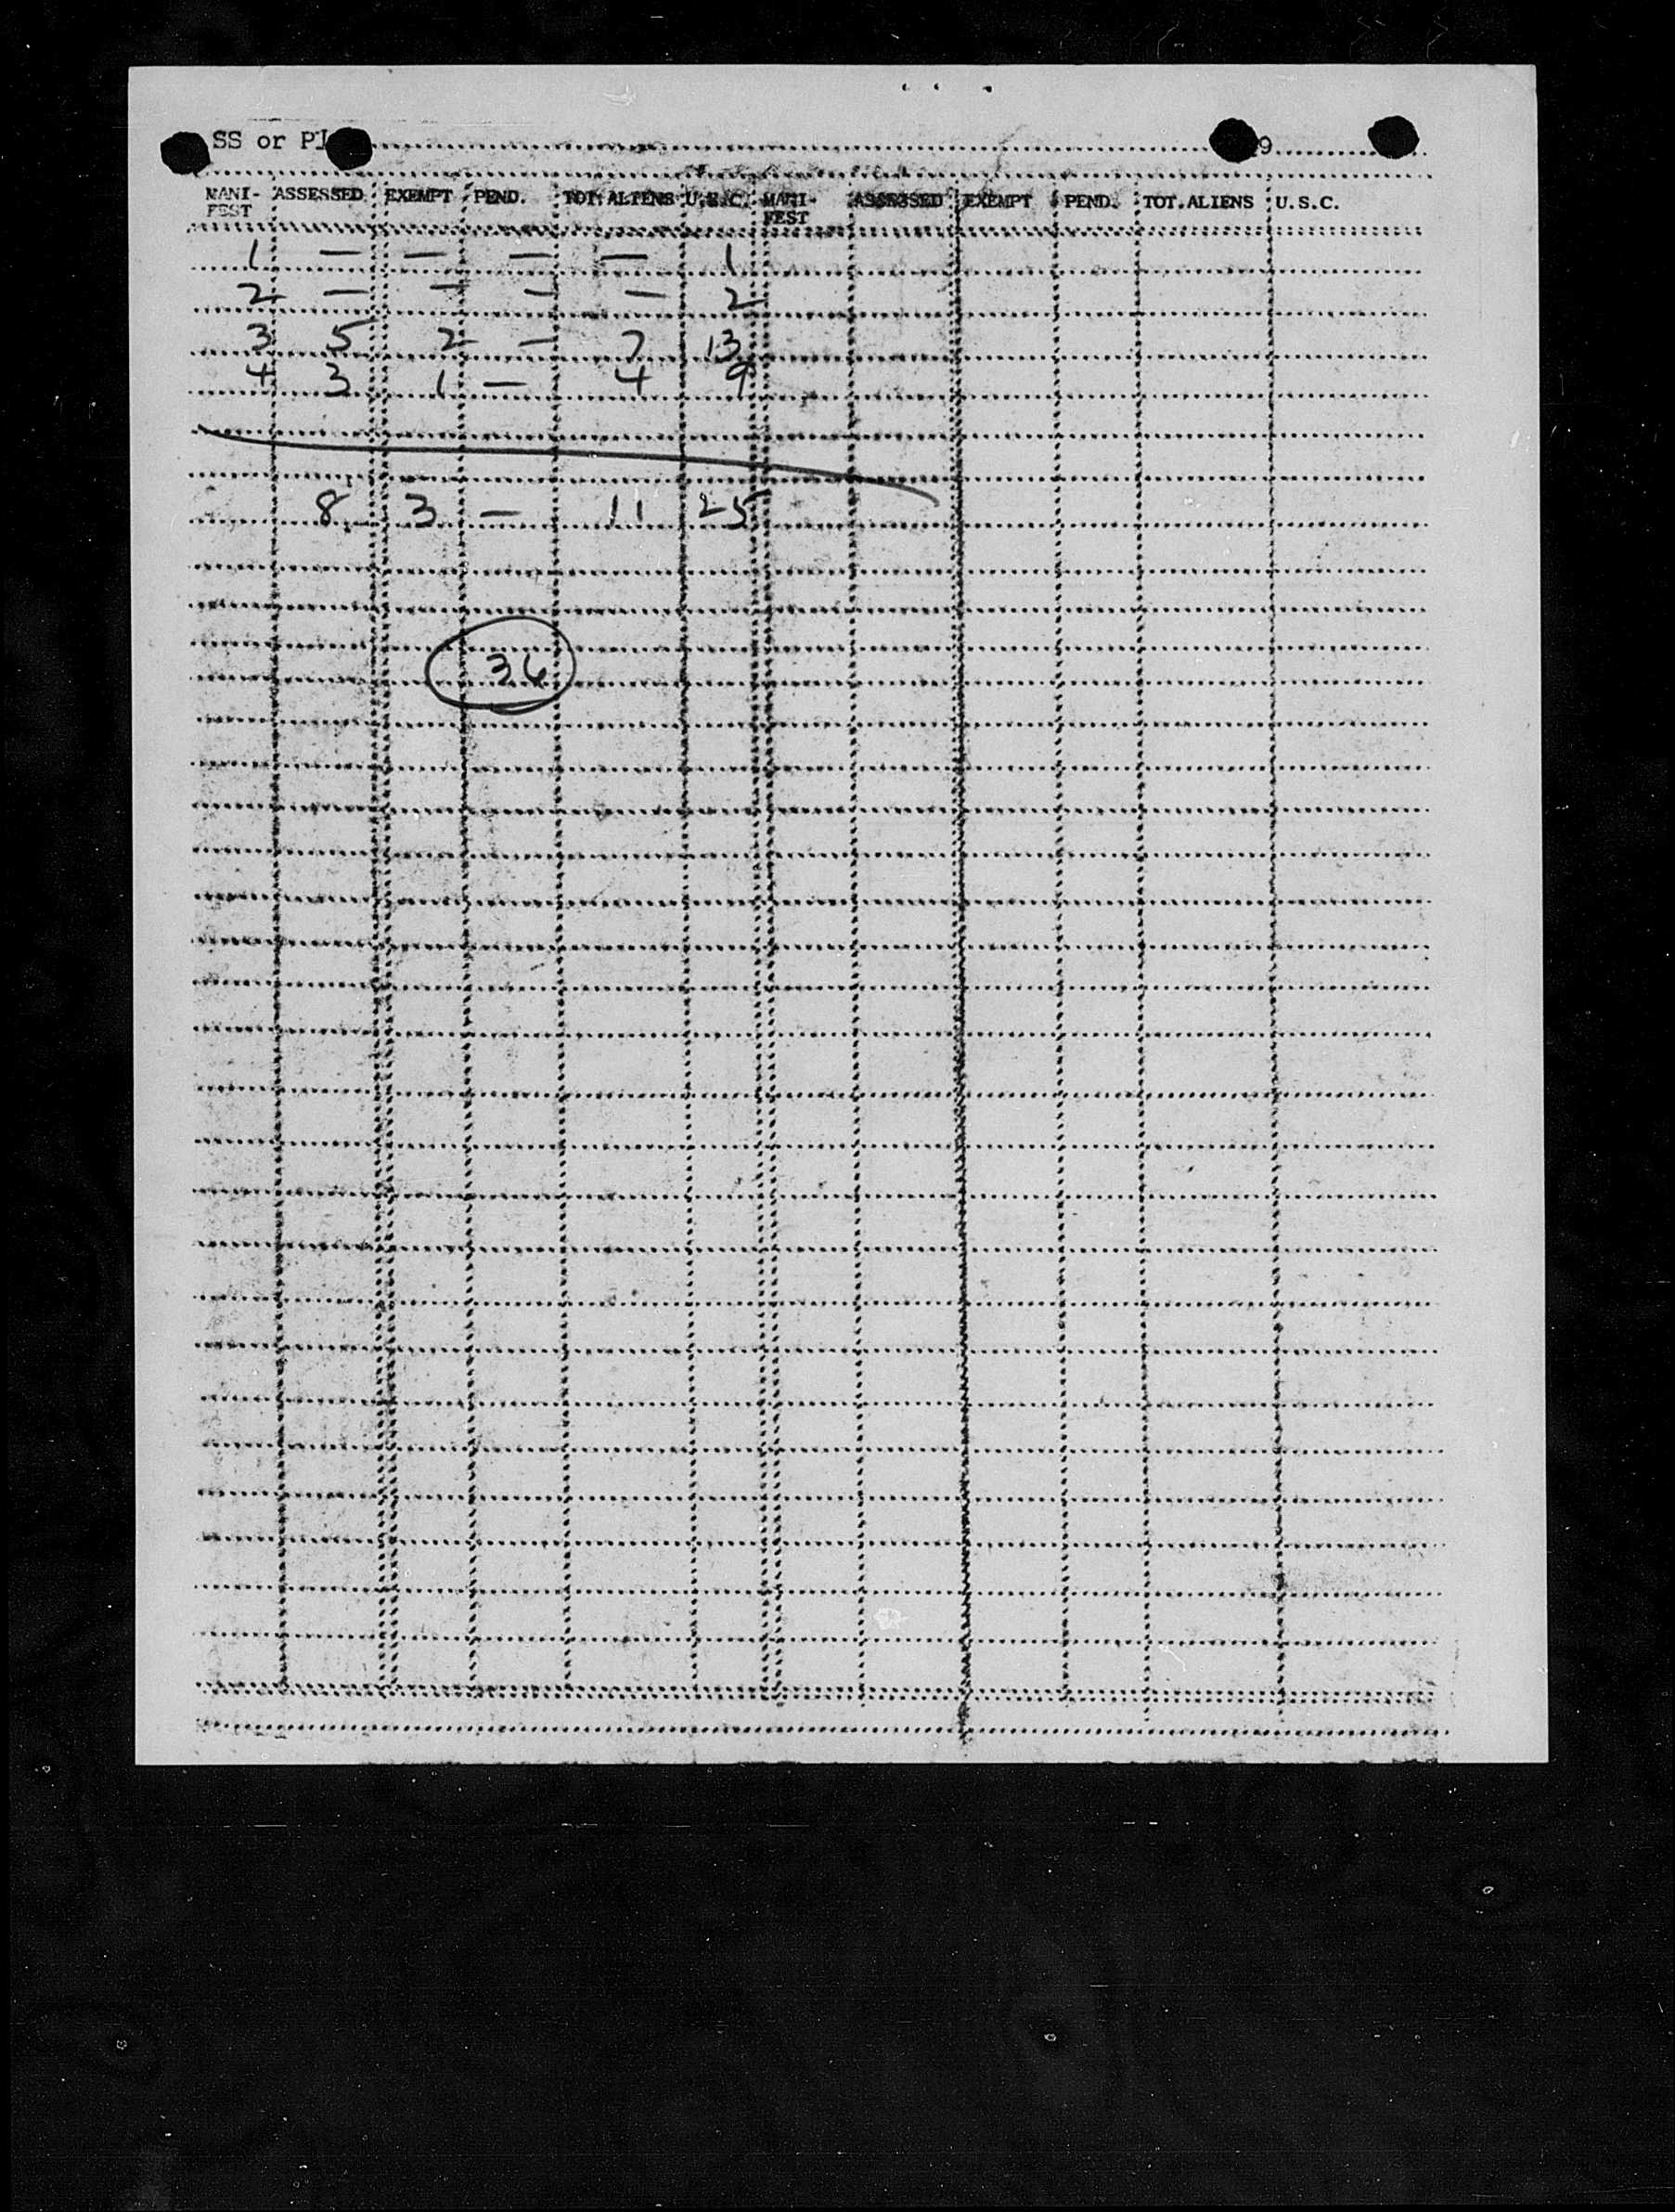 SS or Pl 9
MANI-FEST ASSESSED EXEMPT PEND. TOT. ALIENS U.S.C. MANI-FEST ASSESSED EXEMPT PEND. TOT. ALIENS U.S.C.
1 — — — — 1
2 — — — — 2
3 5 2 — 7 13
4 3 1 — 4 9
8 3 — 11 25
36